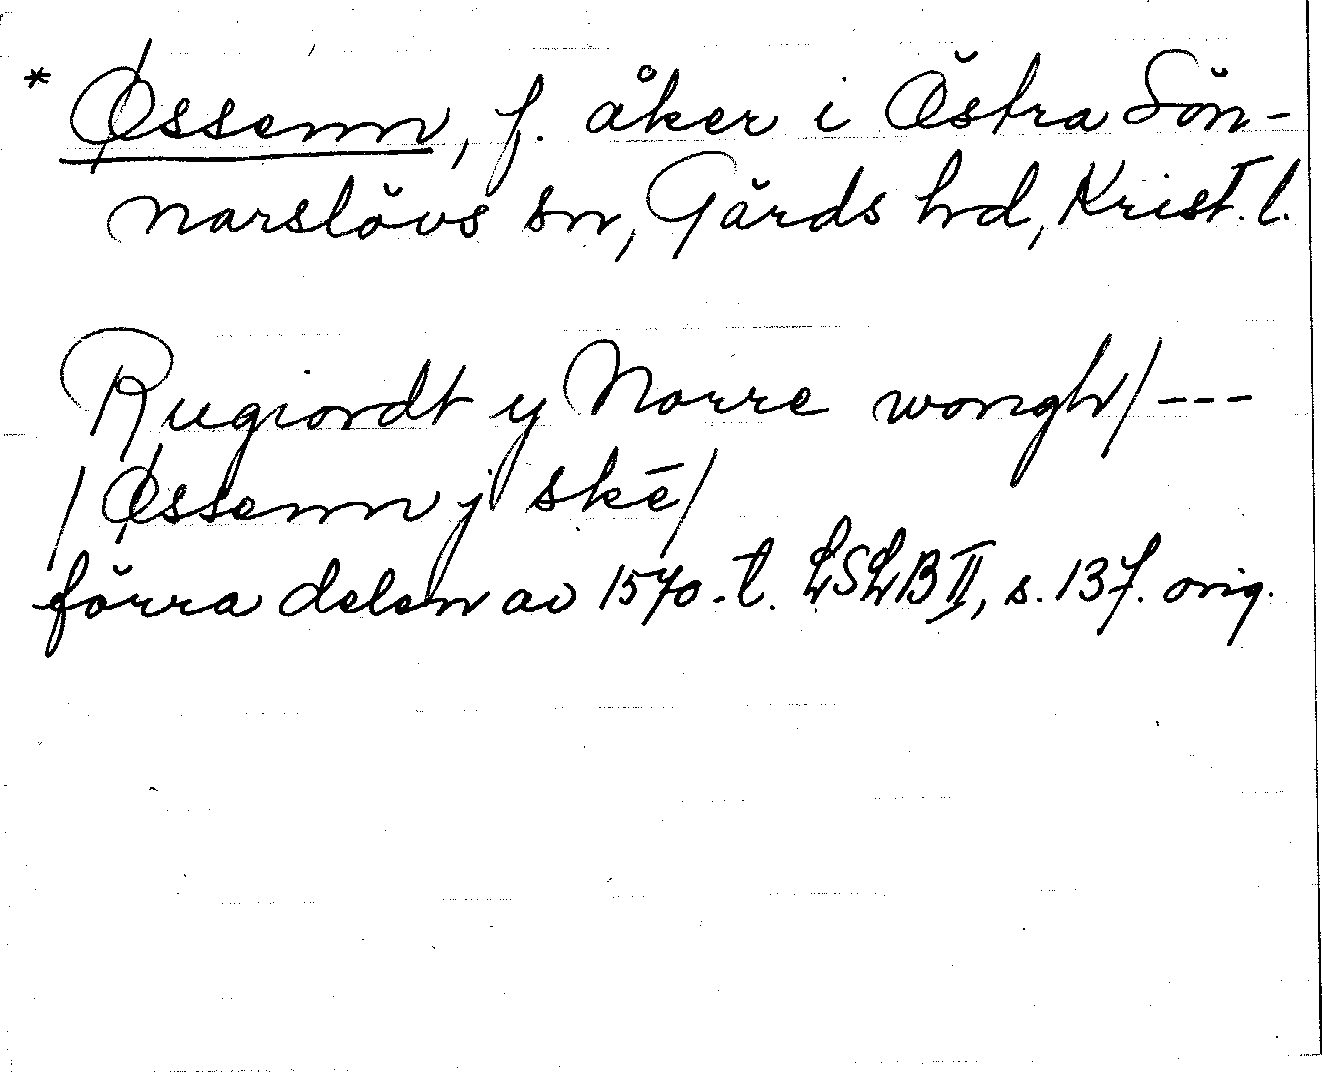 * Øssenn, f. åker i Östra Sön-
narslövs sn, Gärds hd, Krist. l.
Rugiordt y Norre wongh/---
/Øssenn j skē/
förra delen av 1570-t. LSLB II, s. 137. orig.